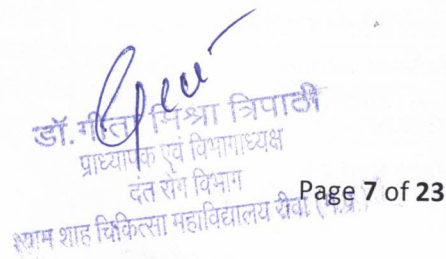 डॉ. गीता मिश्रा त्रिपाठी
प्राध्यापक एवं विभागाध्यक्ष
दंत रोग विभाग
श्याम शाह चिकित्सा महाविद्यालय रीवा (म.प्र.)
Page 7 of 23